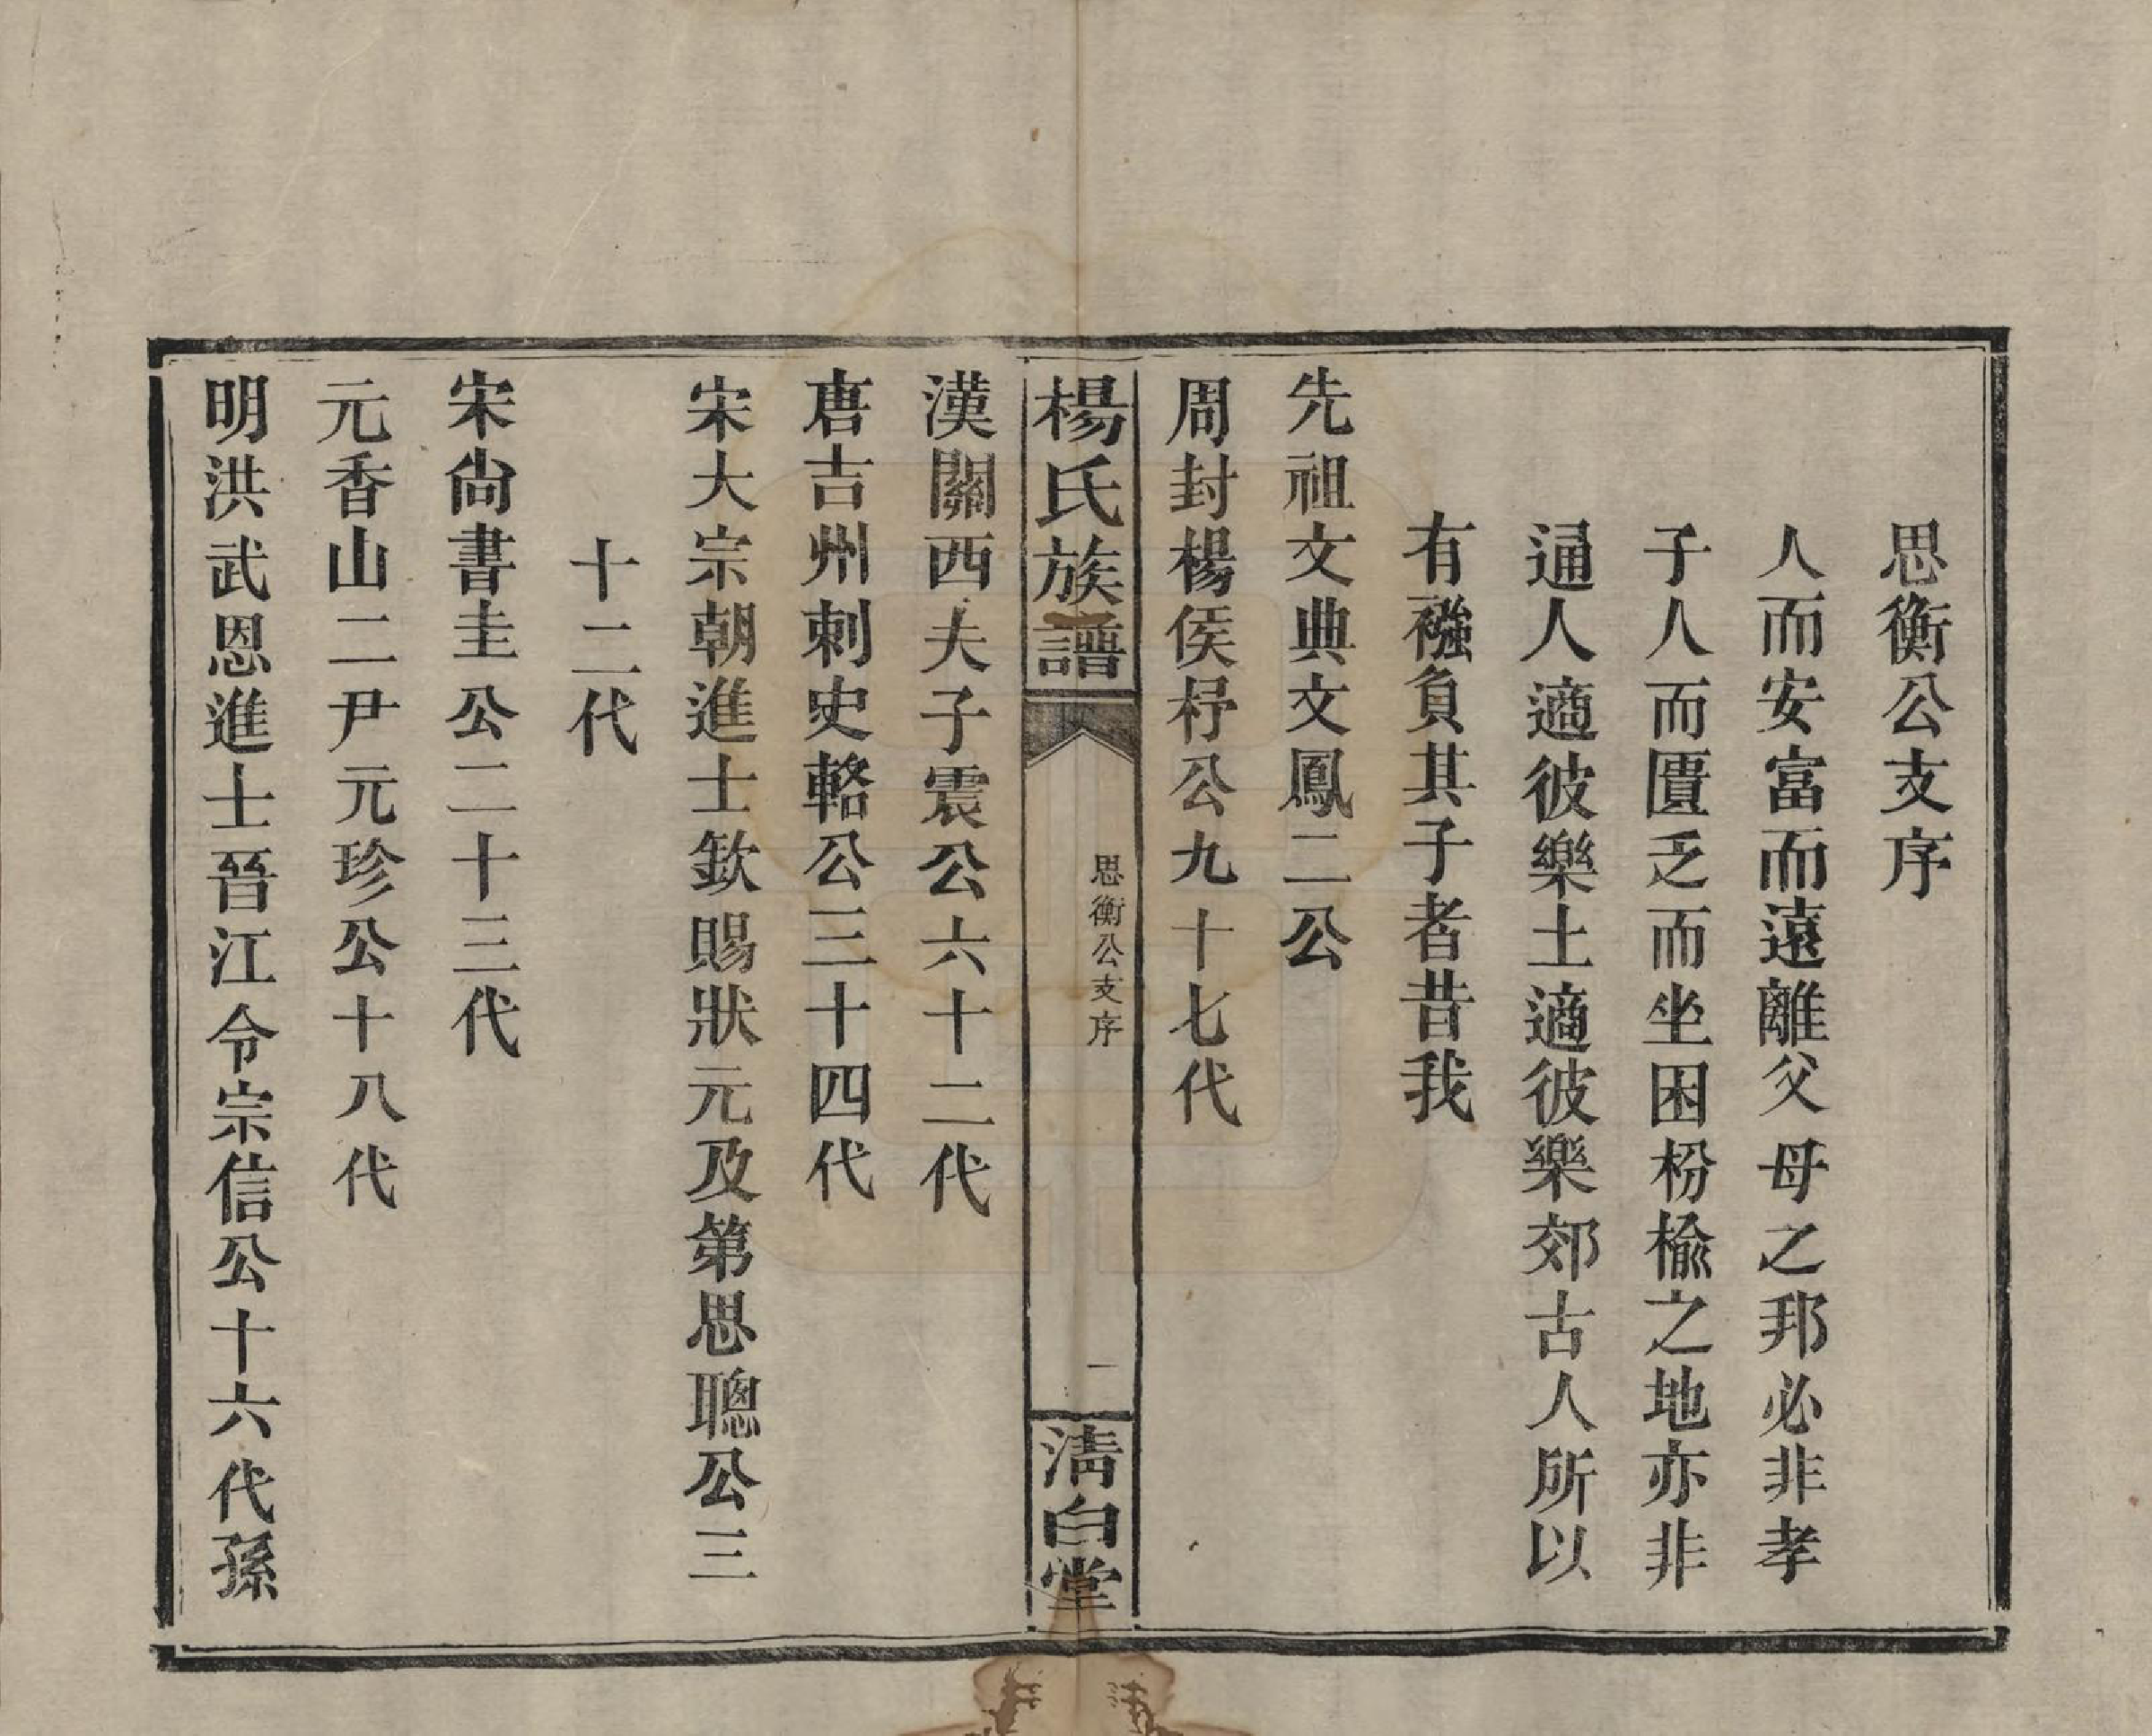 思衡公支序
人而安富而遠離父母之邦必非孝
子人而匱乏而坐困枌榆之地亦非
通人適彼樂土適彼樂郊古人所以
有襁負其子者昔我
先祖文典文鳳二公
周封楊侯杼公九十七代
楊氏族譜
思衡公支序
一
清白堂
漢關西夫子震公六十二代
唐吉州刺史輅公三十四代
宋大宗朝進士欽賜狀元及第思聰公三
十二代
宋尚書圭公二十三代
元香山二尹元珍公十八代
明洪武恩進士晉江令宗信公十六代孫